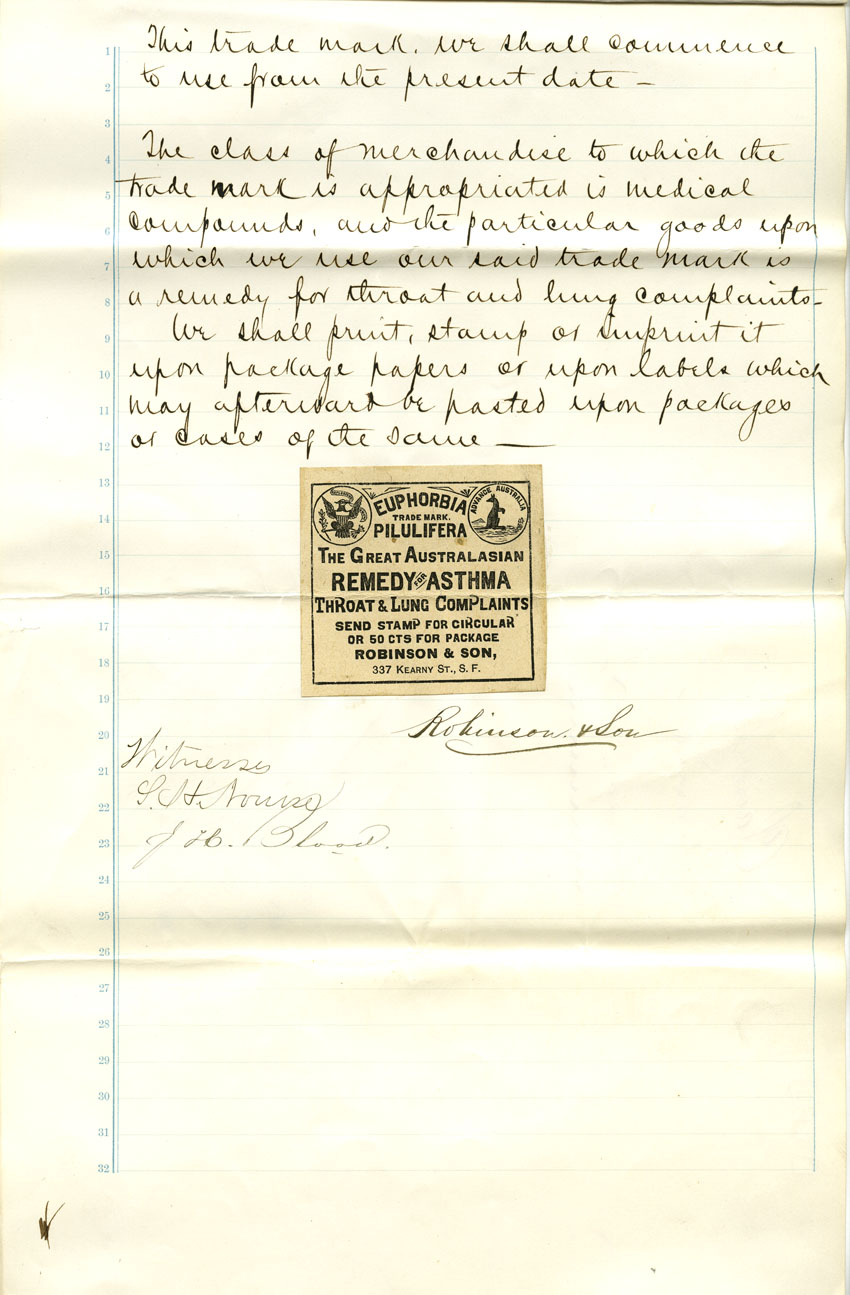 1 This trade mark, we shall commence
2 to use from the present date –
3
4 The class of merchandise to which the
5 trade mark is appropriated is medical
6 compounds, and the particular goods upon
7 which we use our said trade mark is
8 a remedy for throat and lung complaints –
9 We shall print, stamp or imprint it
10 upon package papers or upon labels which
11 may afterward be pasted upon packages
12 or cases of the same —
13
14
15
16
17
18
19
EUPHORBIA
TRADE MARK.
PILULIFERA
ADVANCE AUSTRALIA
THE GREAT AUSTRALASIAN
REMEDY FOR ASTHMA
THROAT & LUNG COMPLAINTS
SEND STAMP FOR CIRCULAR
OR 50 CTS FOR PACKAGE
ROBINSON & SON,
337 KEARNY ST., S. F.
20 Robinson & Son
21 Witnesses
22 S. H. Nourse
23 J H. Blood.
24
25
26
27
28
29
30
31
32